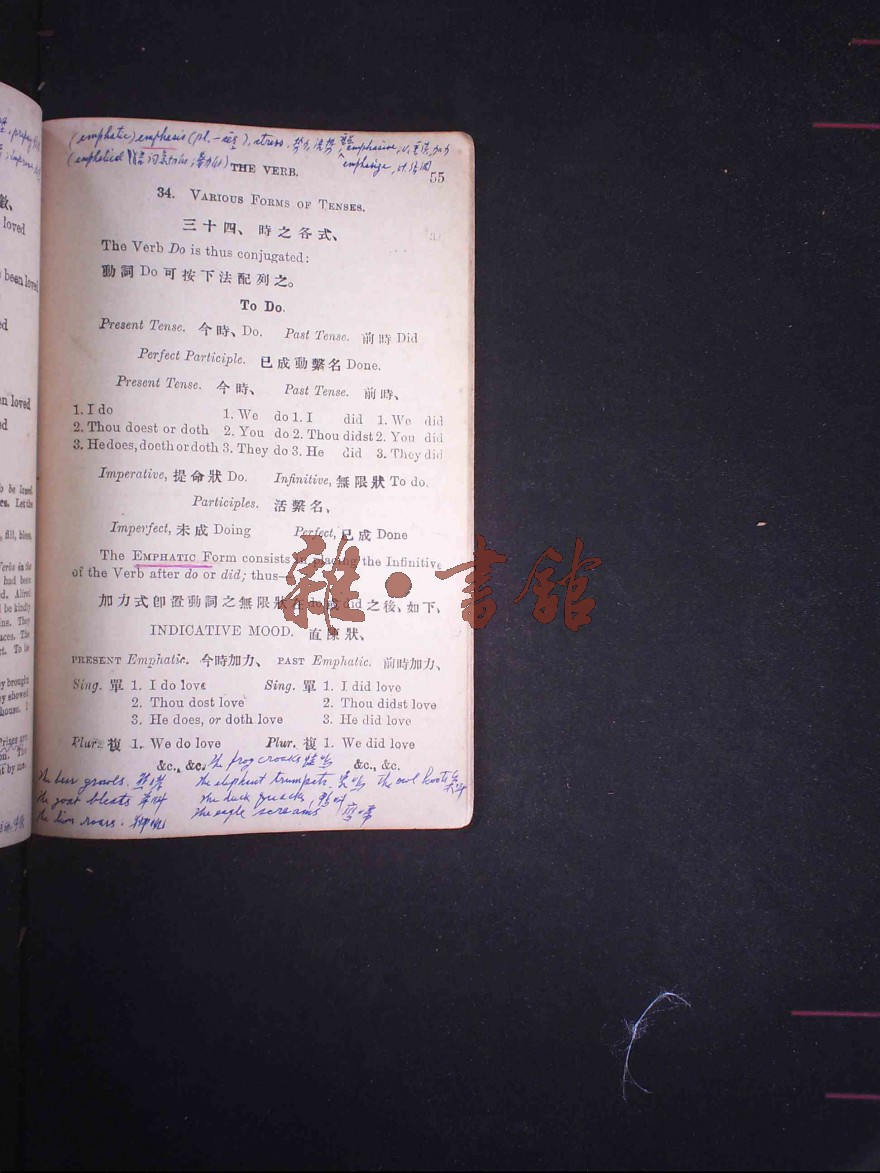 (emphatic) emphasis (pl. -ses), stress,
THE VERB.
55
34. VARIOUS FORMS OF TENSES.
三十四、時之各式、
The Verb Do is thus conjugated:
動詞 Do 可按下法配列之。
To Do.
Present Tense. 今時、Do. Past Tense. 前時 Did
Perfect Participle. 已成動繫名 Done.
Present Tense. 今時、 Past Tense. 前時、
1. I do 1. We do 1. I did 1. We did
2. Thou doest or doth 2. You do 2. Thou didst 2. You did
3. He does, doeth or doth 3. They do 3. He did 3. They did
Imperative, 提命狀 Do. Infinitive, 無限狀 To do.
Participles. 活繫名、
Imperfect, 未成 Doing Perfect, 已成 Done
The EMPHATIC Form consists in placing the Infinitive
of the Verb after do or did; thus—
加力式卽置動詞之無限狀在 do 或 did 之後、如下、
雜·書館
INDICATIVE MOOD. 直陳狀、
PRESENT Emphatic. 今時加力、 PAST Emphatic. 前時加力、
Sing. 單 1. I do love Sing. 單 1. I did love
2. Thou dost love 2. Thou didst love
3. He does, or doth love 3. He did love
Plur. 複 1. We do love Plur. 複 1. We did love
&c., &c. &c., &c.
The frog croaks
the bear growls. the elephant trumpets. the owl hoots
the goat bleats the duck quacks
the lion roars. the eagle screams
loved
been loved
en loved